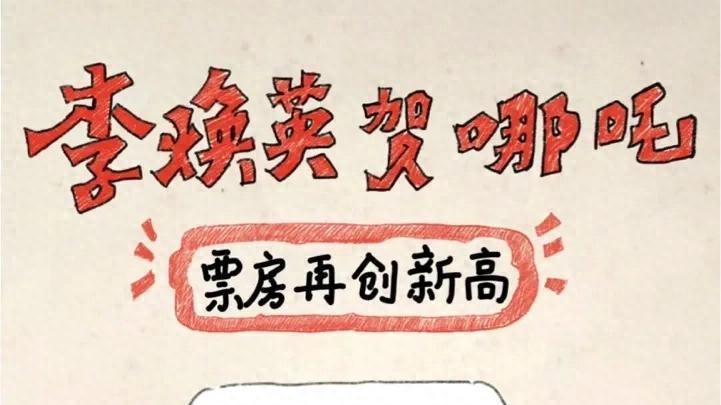 李焕英贺哪吒
票房再创新高